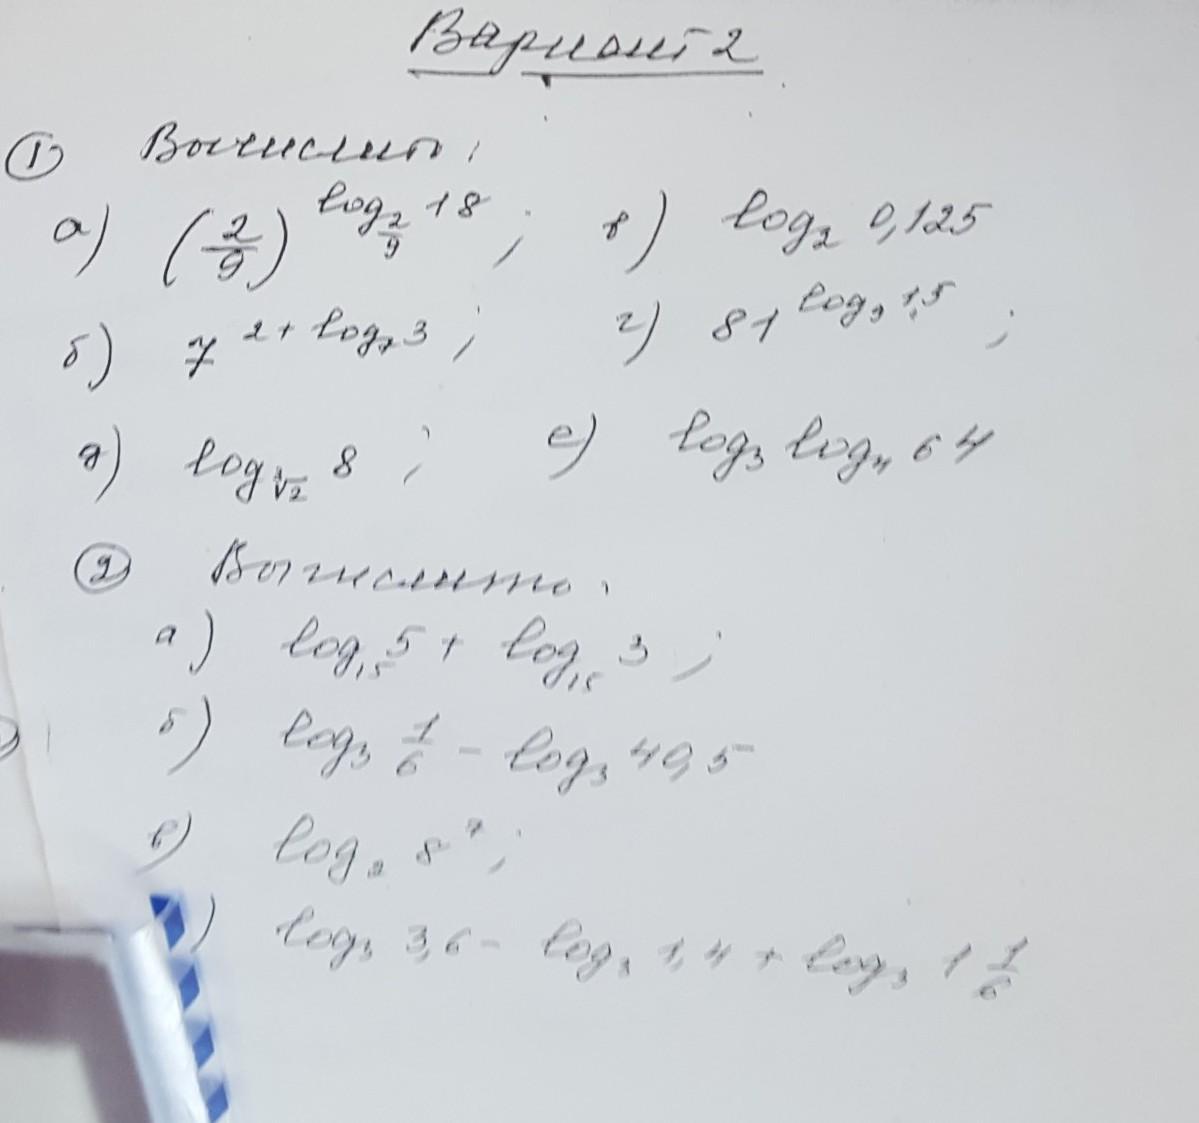 Вариант 2
① Вычислить:
а) (2/9)^(log_(2/9) 18); в) log₂ 0,125
б) 7^(2+log₇ 3); г) 81^(log₉ 1,5);
д) log 8; е) log₃ log₄ 64
② Вычислить:
а) log₁₅ 5 + log₁₅ 3;
б) log₃ 1/6 - log₃ 40,5
в) log₂ 8⁷;
) log₃ 3,6 - log₃ 1,4 + log₃ 1 1/6